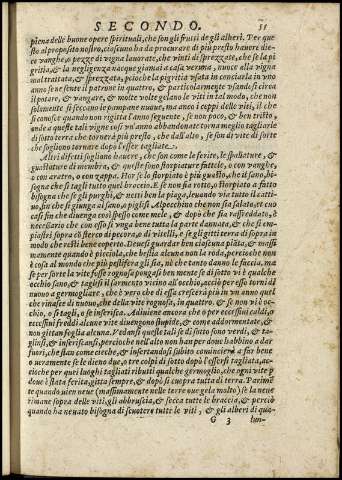 SECONDO. 51
piena delle buone opere spirituali, che son gli frutti de gli alberi. Per que
sto al proposito nostro, ciascuno ha da procurar di più presto hauere die-
ce vanghe, o pezze di vigna lauorate, che vinti di sprezzate, che se la pi
gritia, & la negligenza nacque giamai a casa veruna, nuoce alla vigna
mal trattata, & sprezzata, perciochè la pigritia vsata in conciarla in vno
anno se ne sente il patrone in quattro, & particolarmente vsandosi circa
il potare, & vangare, & molte volte gelano le viti in tal modo, che non
solamente se si zecano le pampane nuoue, ma anco i ceppi delle viti, il che
si conosce quando non rigitta l'anno seguente, se non poco, & ben tristo,
onde a queste tali vigne così vn'anno abbandonate torna meglio tagliarle
di sotto terra che tornerà più presto, che dall'alto, se son di vite di sorte
che sogliono tornare dopò l'esser tagliate.
Altri difetti sogliono hauere, che son come le ferite, le spollature, &
guasature di membra, & queste sono storpiature fattole, o con vanghe,
o con aratro, o con zappa. Hor se lo storpiato è più guasto, che il sano, bi-
sogna che si tagli tutto quel braccio. E se non sia rotto, storpiato a fatto
bisogna che se gli purghi, & netti ben la piaga, leuando via tutto il catti-
uo, fin che si giunga al sano, & piglisi Alpechino che non sia salato, et cuo
casi fin che diuenga così spesso come mele, & dopò che sia raffreddato, è
necessario che con esso si vnga bene tutta la parte dannata, & che si em-
piastri sopra cō sterco di pecora, o di vitelli, e se gli gitti terra di sopra in
modo che resti bene coperto. Deuesi guardar ben ciascuna piāta, & massi
mamente quando è picciola, che bestia alcuna non la roda, percioche non
è cosa al mondo che più pestifera gli sia, nè che tanto danno le faccia, ma
se per sorte la vite fusse rognosa pongasi ben mente se di sotto vi è qualche
occhio sano, & taglisi il sarmento vicino all'occhio, acciò per esso torni di
nuouo a germogliare, che è vero che di essa crescerà più in vn anno quel
che rinasce di nuouo, che della vite rognosa, in quattro. & se non vi è oc-
chio, o si tagli, o se inserisca. Aduiene ancora che o per eccessiui caldi, o
eccessiui freddi alcune vite diuengono stupide, & come addormentate, &
non gittan foglia alcuna. Vedansi queste tali se di sotto sono verdi, & ta-
glinsi, & inseriscansi, percioche nell'alto non han per donc habbino a dar
fuori, che stan come cieche, & insertandosi subito comincierà a far bene
o ueramente se le dieno due, o tre colpi di sotto dopò l'essersi tagliata, ac-
cioche per quei luoghi tagliati ributti qualche germoglio, che ogni vite p
doue è stata ferita, gitta sempre, & dopò si cuopra tutta di terra. Parimē
te quando uien neue (massimamente nelle terre oue gela molto) se la neue
rimane sopra delle viti, gli abbruscia, & secca tutte le braccia, & perciò
quando ha neuato bisogna di scuotere tutte le viti, & gli alberi di quo-
G 3 lun-